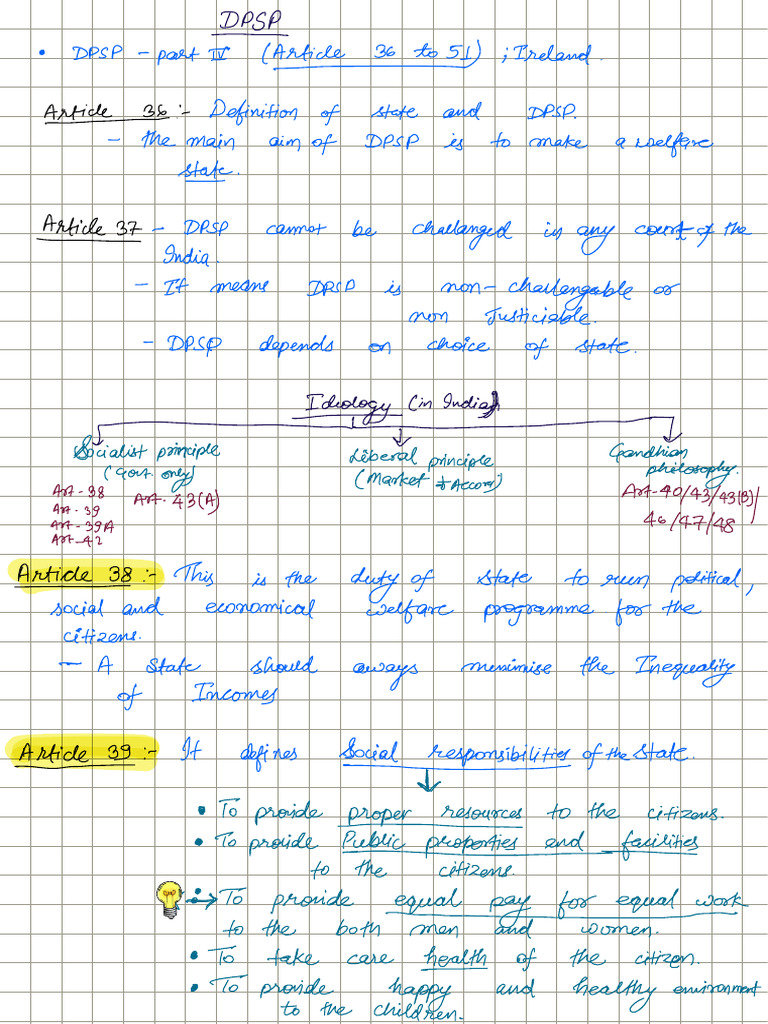 DPSP
• DPSP - part IV (Article 36 to 51) ; Ireland.
Article 36 :- Definition of state and DPSP.
- the main aim of DPSP is to make a welfare
state.
Article 37 - DPSP cannot be challanged in any court of the
India.
- It means DPSP is non-challengable or
non Justiciable.
- DPSP depends on choice of state.
Ideology (in India)
Socialist principle
(Govt only)
Art - 38
Art - 39
Art - 39A
Art - 42
Art - 43(A)
Liberal principle
(Market & Accom)
Gandhian
philosophy.
Art-40/43/43(B)/
46/47/48
Article 38 :- This is the duty of state to run political,
social and economical welfare programme for the
citizens.
- A State should aways menimise the Inequality
of Incomes
Article 39 :- It defines Social responsibilities of the State.
• To provide proper resources to the citizens.
• To provide Public properties and facilities
to the citizens.
To provide equal pay for equal work
to the both men and women.
• To take care health of the citizen.
• To provide happy and healthy environment
to the children.